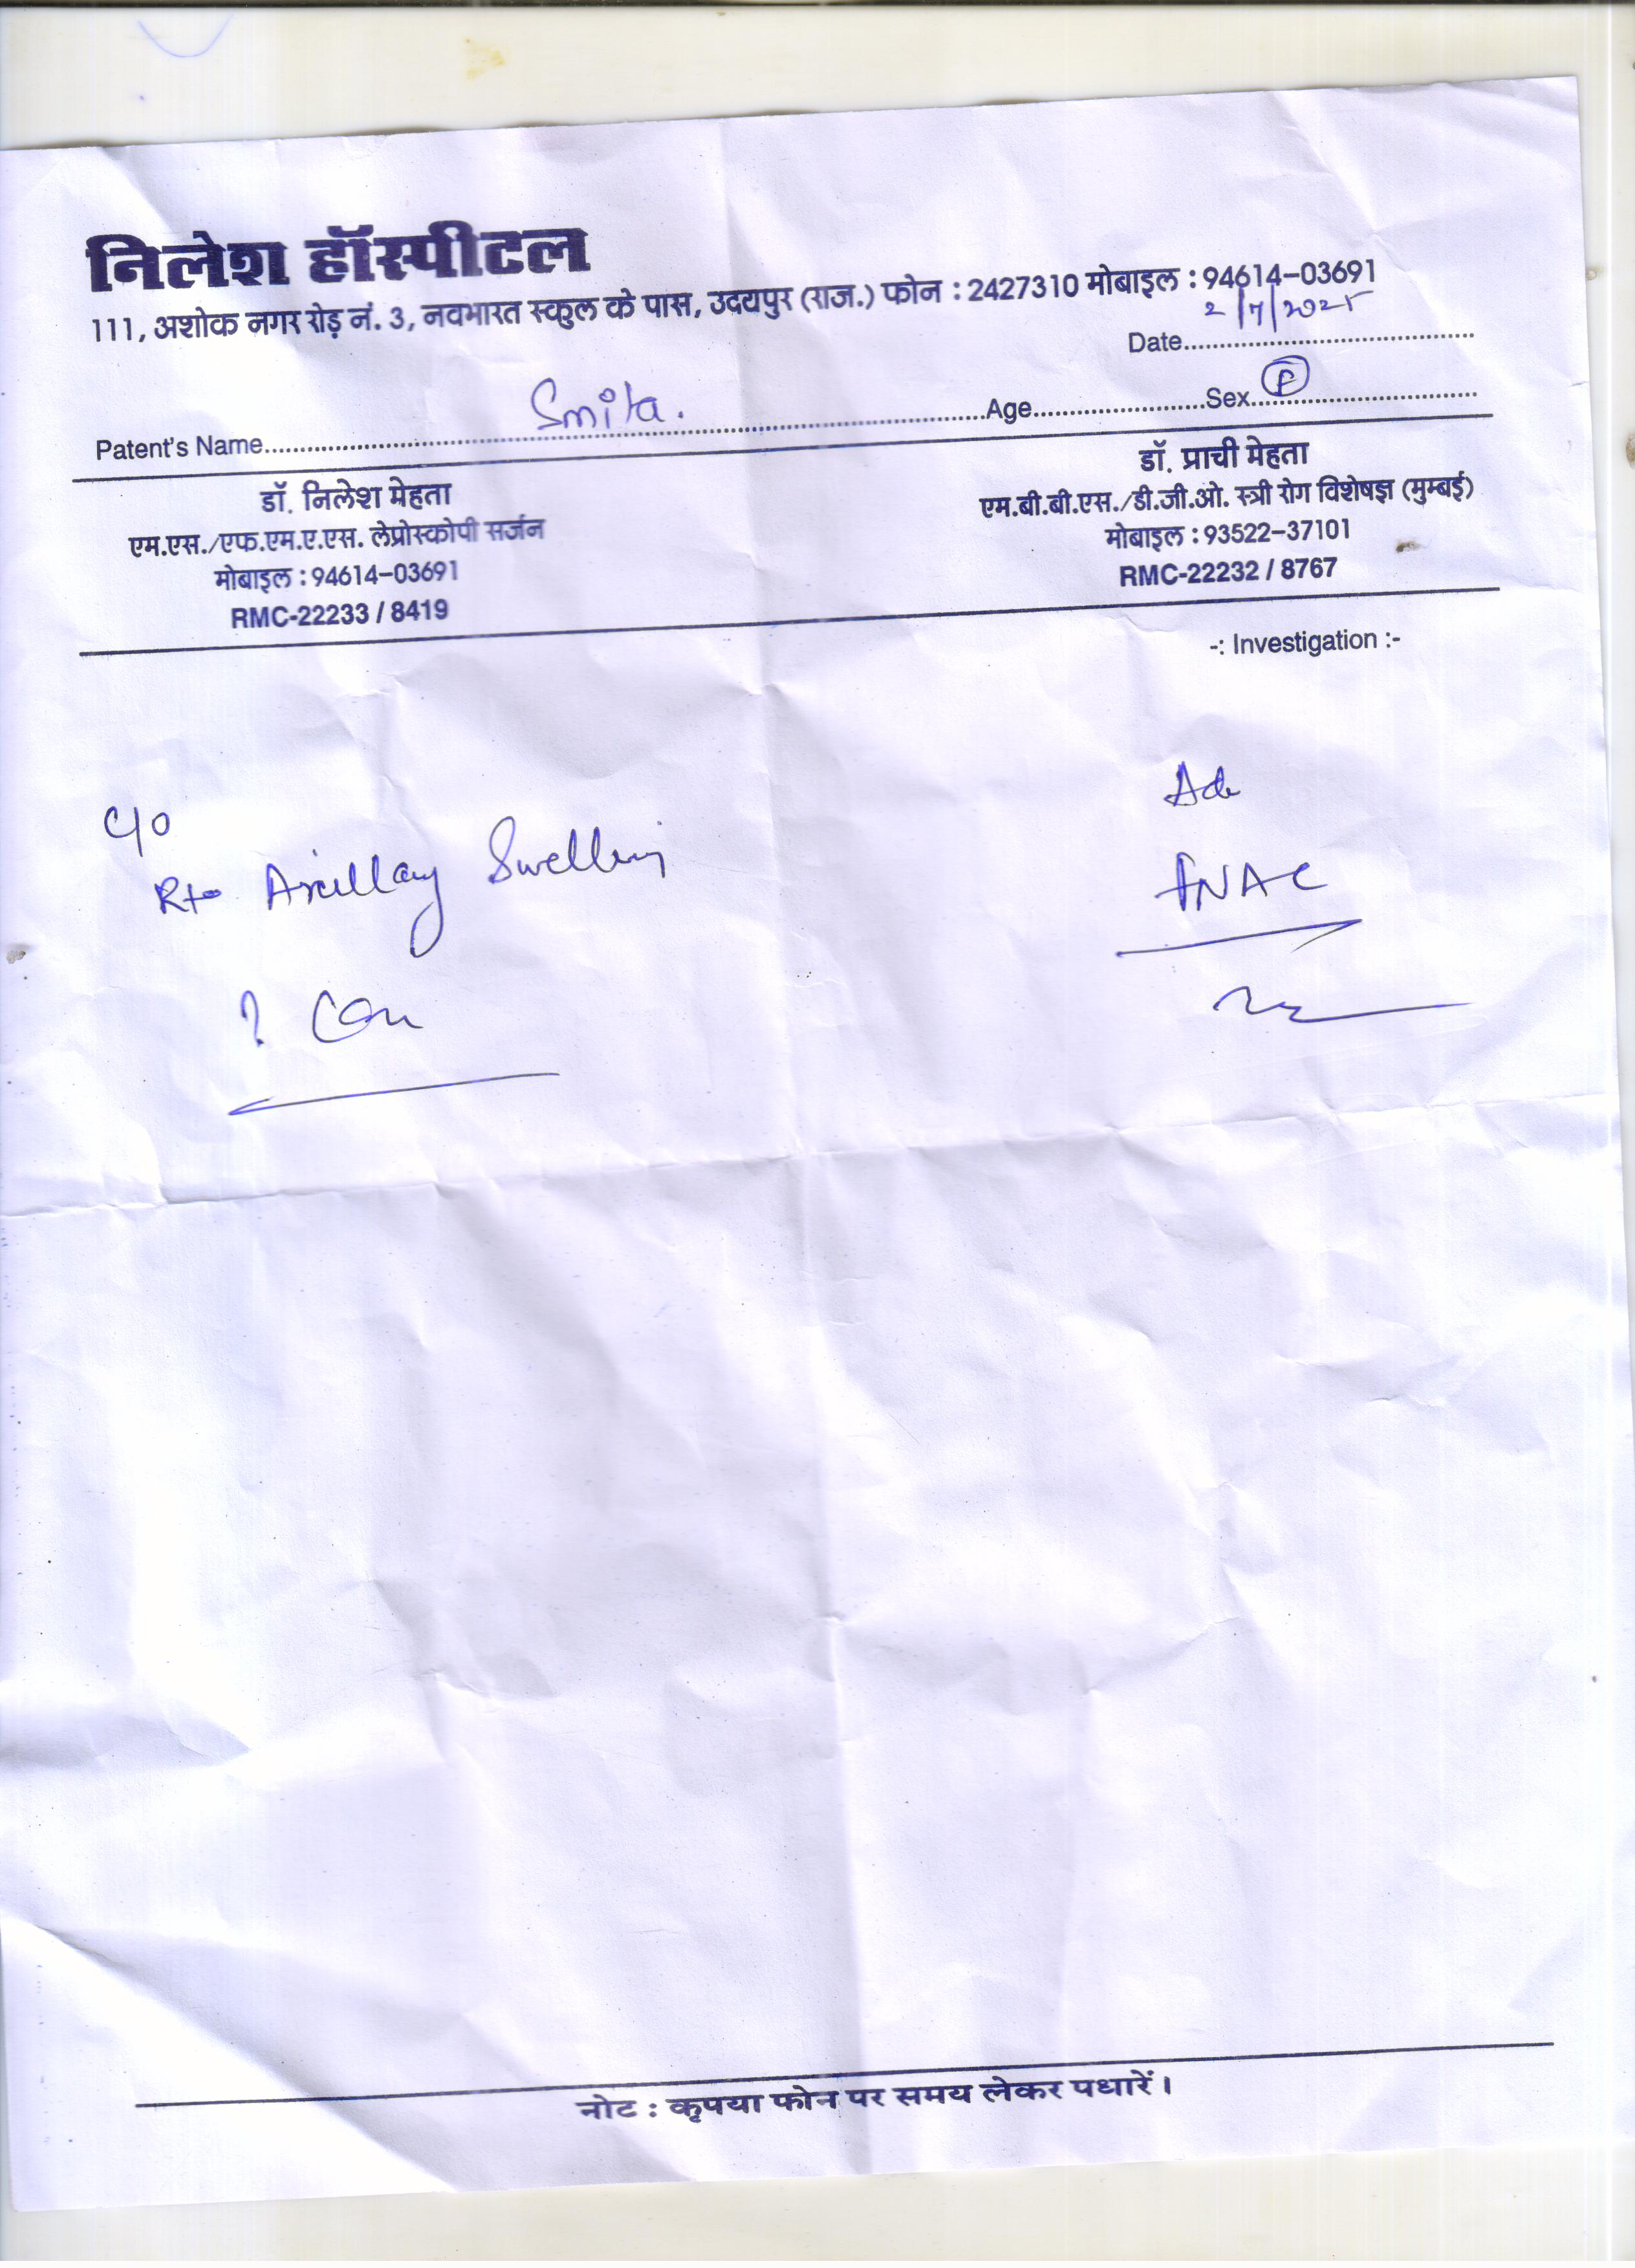 निलेश हॉस्पीटल
111, अशोक नगर रोड़ नं. 3, नवभारत स्कुल के पास, उदयपुर (राज.) फोन : 2427310 मोबाइल : 94614-03691
Date 2/7/2025
Patent's Name Smita. Age Sex F
डॉ. निलेश मेहता
एम.एस./एफ.एम.ए.एस. लेप्रोस्कोपी सर्जन
मोबाइल : 94614-03691
RMC-22233 / 8419
डॉ. प्राची मेहता
एम.बी.बी.एस./डी.जी.ओ. स्त्री रोग विशेषज्ञ (मुम्बई)
मोबाइल : 93522-37101
RMC-22232 / 8767
-: Investigation :-
C/o
Rt Axillary Swelling
?
Adv
FNAC
नोट : कृपया फोन पर समय लेकर पधारें।